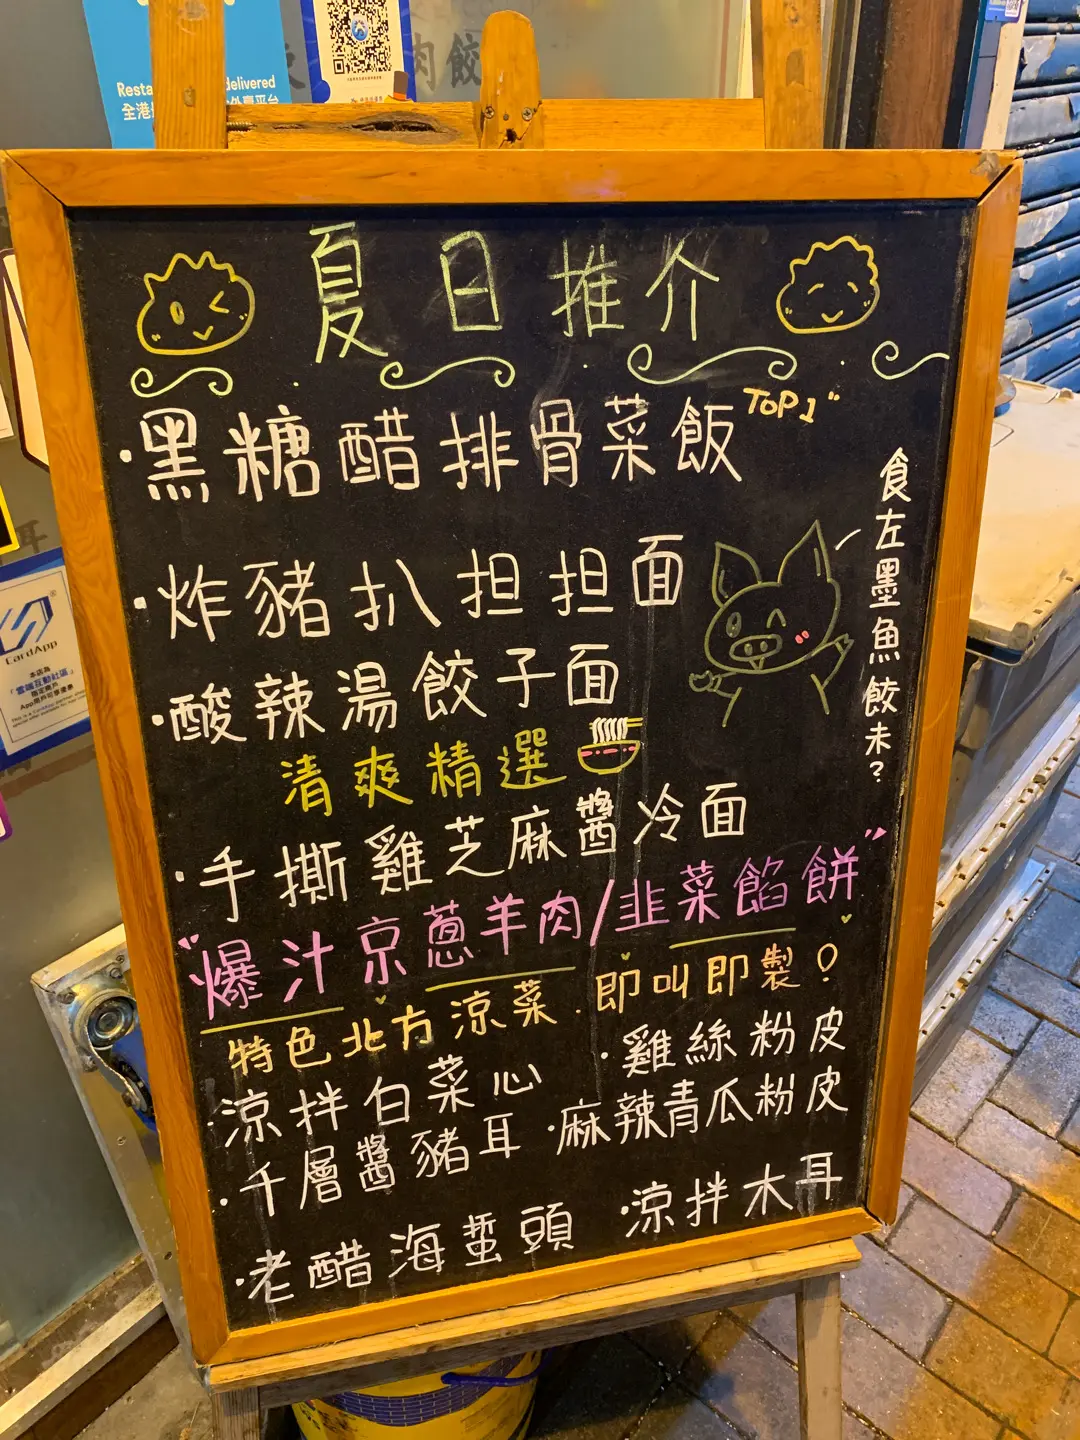 Resta
delivered
全港
外賣平台
肉餃
夏日推介
·黑糖醋排骨菜飯 TOP 1"
·炸豬扒担担面
·酸辣湯餃子面
清爽精選
·手撕雞芝麻醬冷面
"爆汁京蔥羊肉/韭菜餡餅"
特色北方涼菜.即叫即製!
·涼拌白菜心
·雞絲粉皮
·千層醬豬耳
·麻辣青瓜粉皮
·老醋海蜇頭
·涼拌木耳
食左墨魚餃未?
耳
CardApp
本店為
「雲端互動社區」
指定商戶